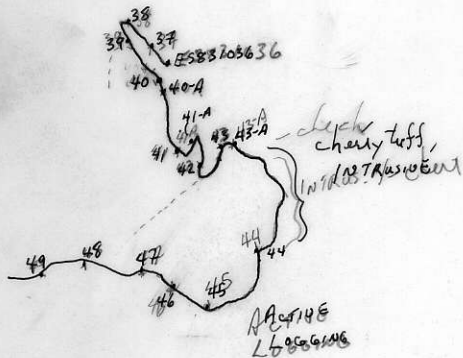 38
39 37
ES83203636
40
40-A
41-A
41 43 43-A
42
check
cherty tuff,
INTRUSIVE
44 44
49 48 47
46 45
ACTIVE
LOGGING